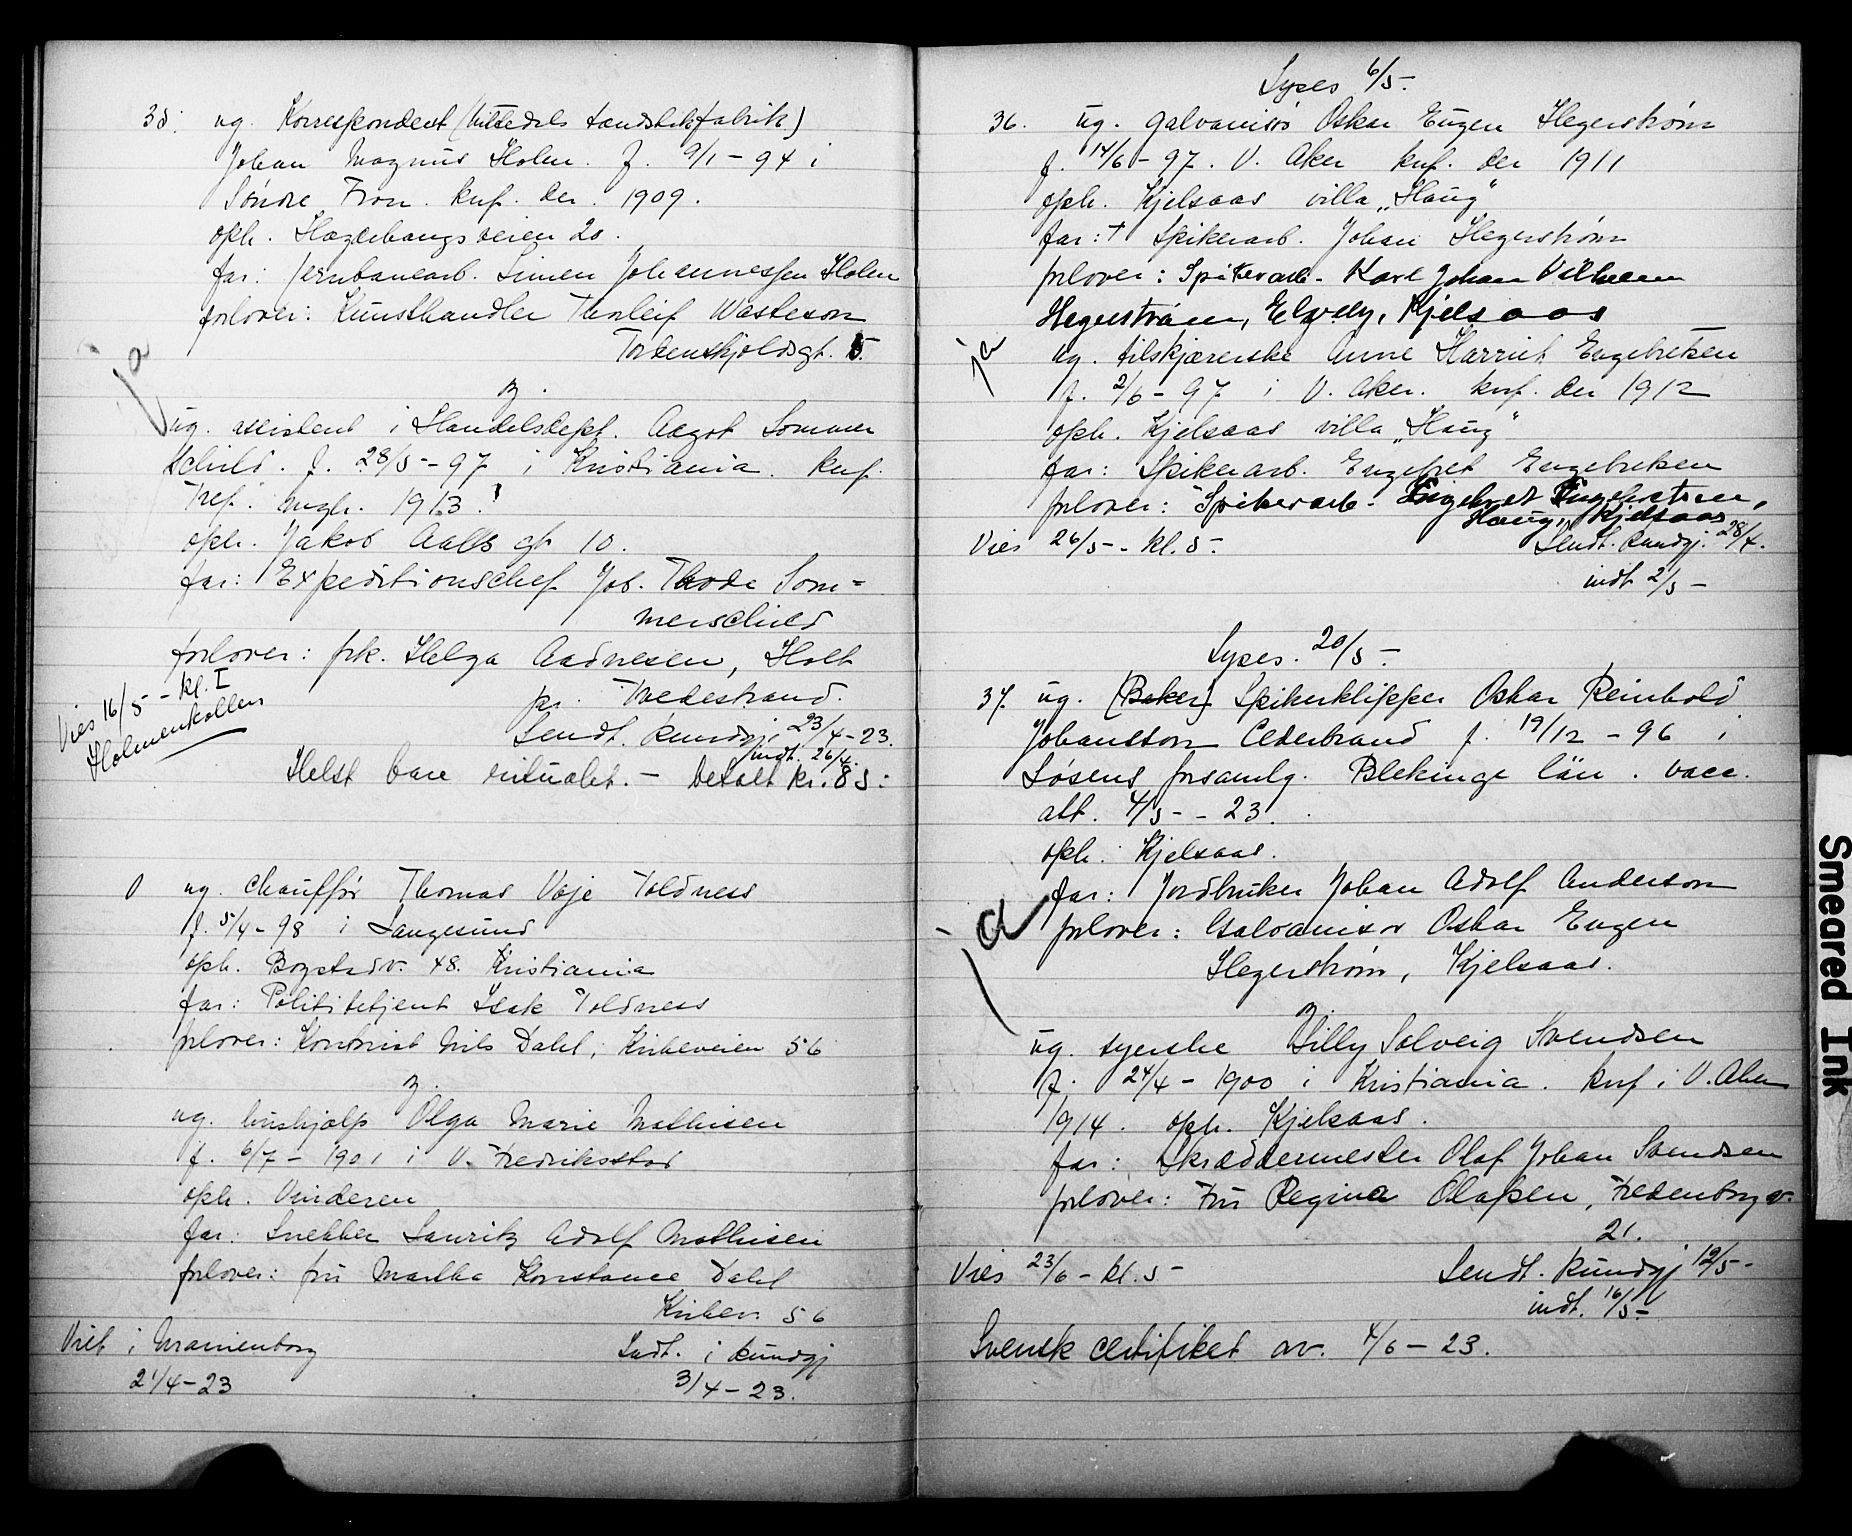 35. ug. Korrespondent (Nittedals tændstikfabrik)
Johan Magnus Holen. f. 9/1 - 94 i
Søndre Fron. knf. der. 1909.
oph. Hagebangsveien 20.
far: jernbanearb. Simen Johannessen Holen
forlover: Kunsthandler Thorleif Wasteson
Tordenskjoldsgt. 5.
ja
og.
ug. assistent i Handelsdept. Aagot Sommer
schild. f. 28/5 - 97 i Kristiania. knf.
Tref. mgh. 1913.
oph. Jakob Aalls gt 10.
far: Expeditionschef Job. Thode Som=
merschild
forlover: frk. Helga Aadnesen, Holt
pr. Tvedestrand.
Vies 16/5 - kl. 1
Holmenkollen
Sendt. kundgj. 23/4 - 23.
indt. 26/4.
Helst bare ritualet. - betalt kr. 85:
0 ug. chauffør Thomas Voje Toldness
f. 5/4 - 98 i Langesund
oph. Bogstadv. 48. Kristiania
far: Politibetjent Isak Toldness
forlover: Kontorist Nils Dahl, Kirkeveien 56
og.
ug. hushjælp Olga Marie Mathisen
f. 6/7 - 1901 i V. Fredrikstad
oph. Vinderen
far: Snekker Lauritz Adolf Mathisen
forlover: fru Martha Konstance Dahl
Kirkev. 56
Viet i Uranienborg
21/4 - 23
Sendt. i kundgj
3/4 - 23.
Lyses 6/5 -
36. ug. galvanisør Oskar Eugen Hegerstrøm
f. 14/6 - 97. V. Aker knf. der 1911
oph. Kjelsaas villa „Haug"
far: † Spikerarb. Johan Hegerstrøm
forlover: Spikerarb. Karl Johan Vilhelm
Hegerstrøm, Elvely, Kjelsaas
ja
ug. tilskjærerske Anne Harriet Engebretsen
f. 2/6 - 97 i V. Aker. knf. der 1912
oph. Kjelsaas villa „Haug"
far: Spikerarb. Engebret Engebretsen
forlover: Spikerarb. Engebret Engebretsen,
Haug, Kjelsaas
Vies 26/5 - kl. 5.
Sendt. kundgj. 28/4.
indt 2/5 -
Lyses. 20/5 -
37. ug. (Baker) Spikerklipper Oskar Reinhold
Johansson Cederbrand f. 19/12 - 96 i
Løsens forsamlg. Blekinge län. vacc.
att. 4/5 - - 23.
oph. Kjelsaas.
ja
far: Jordbruker Johan Adolf Anderson
forlover: Galvanisør Oskar Eugen
Hegerstrøm, Kjelsaas.
og.
ug. syerske Lilly Solveig Svendsen
f. 24/4 - 1900 i Kristiania. knf i V. Aker
1914. oph. Kjelsaas.
far: Skræddermester Olaf Johan Svendsen
forlover: Fru Regina Olafsen, Fredenborgv.
21.
Vies 23/6 - kl. 5 -
Sendt. kundgj 12/5 -
indt. 16/5 -
Svensk certifiket av. 4/6 - 23.
Smeared Ink